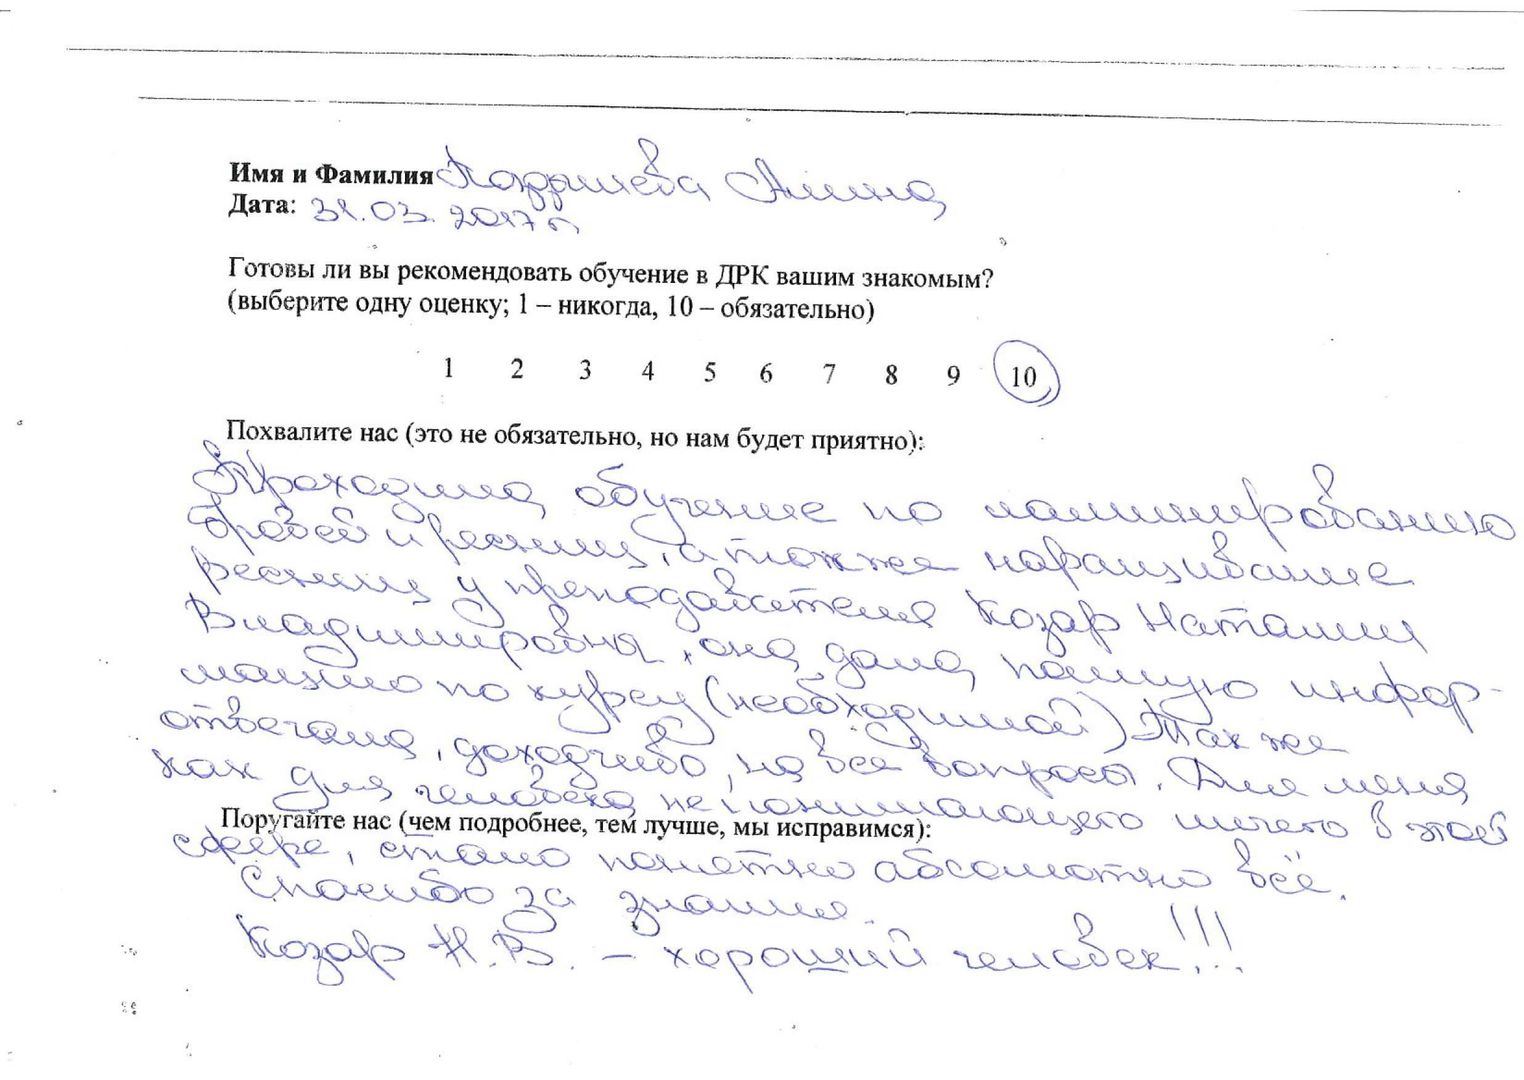 Имя и Фамилия Кардашева Алина
Дата: 31.03.2017г.
Готовы ли вы рекомендовать обучение в ДРК вашим знакомым?
(выберите одну оценку; 1 – никогда, 10 – обязательно)
1 2 3 4 5 6 7 8 9 10
Похвалите нас (это не обязательно, но нам будет приятно):
Проходила обучение по ламинированию
бровей и ресниц, а также наращивание
ресниц у преподавателя Козар Наталии
Владимировны, она дала полную инфор-
мацию по курсу (необходимой) Также
отвечала, доходчиво, на все вопросы. Для меня
как для человека не понимающего ничего в этой
Поругайте нас (чем подробнее, тем лучше, мы исправимся):
сфере, стало понятно абсолютно всё.
Спасибо за знания.
Козар Н.В. – хороший человек!!!